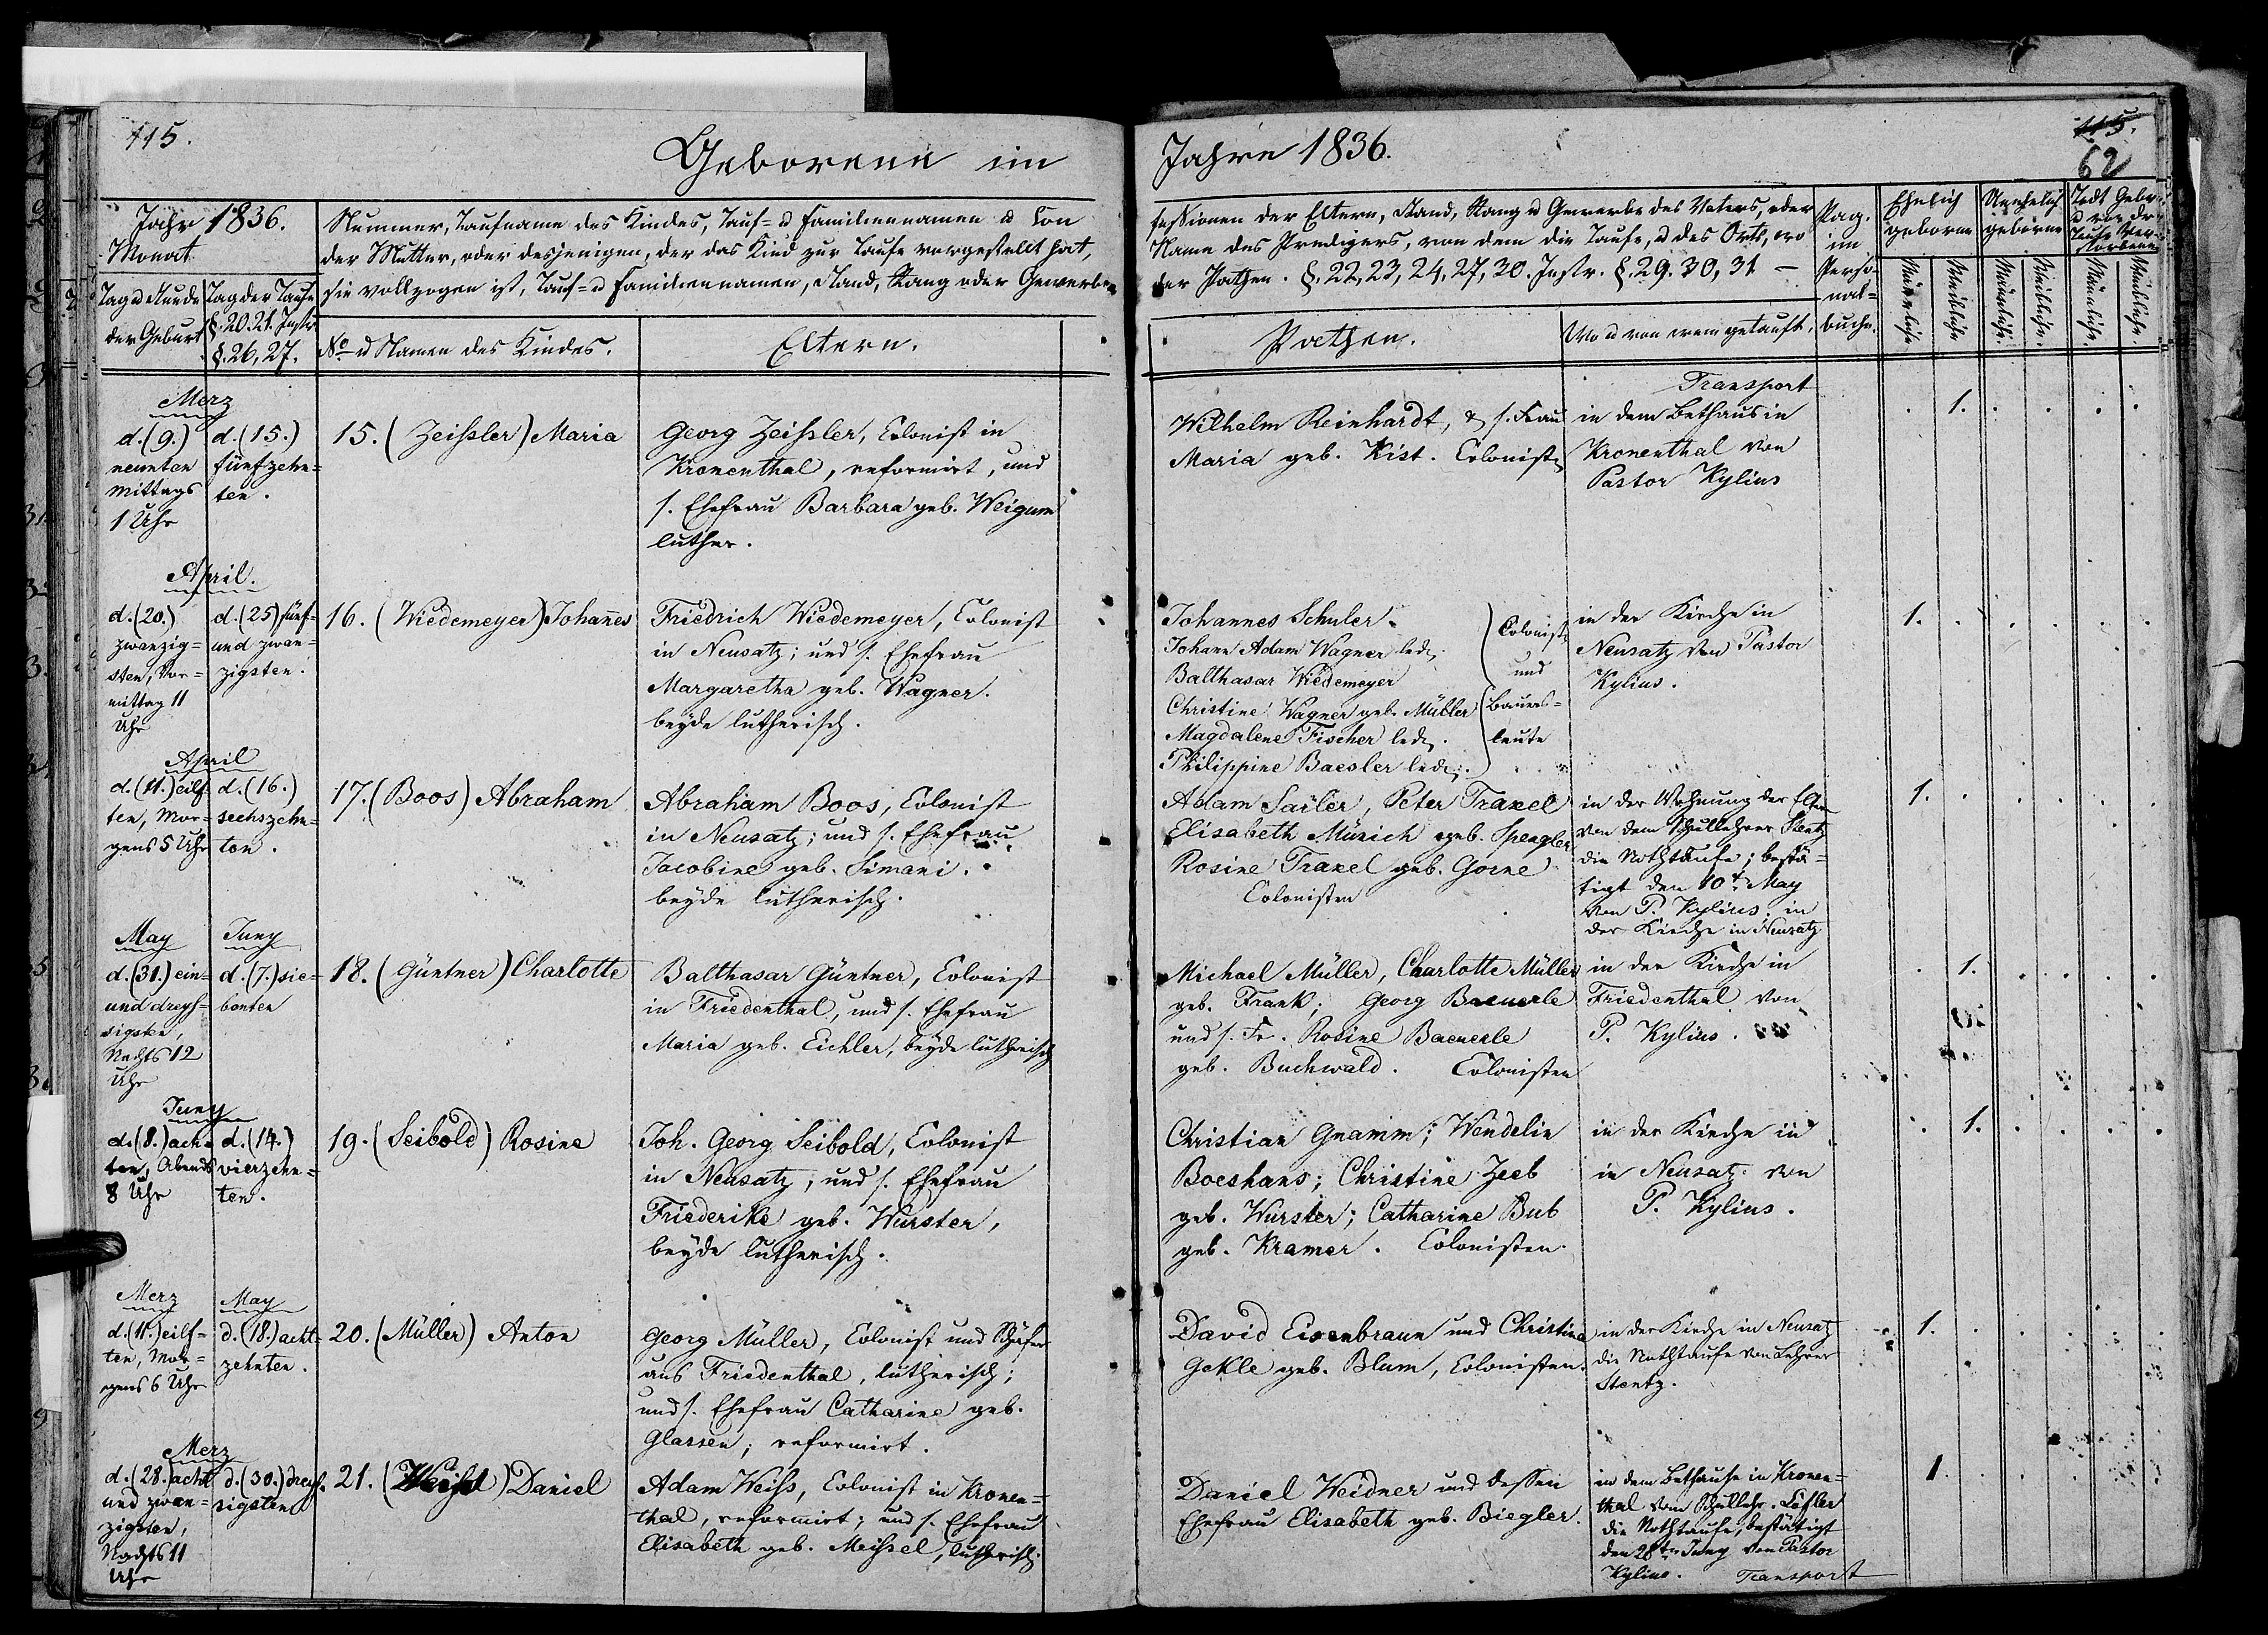 115.
Geborene im
Jahr 1836.
Monat
Nummer, Taufname des Kindes, Tauf- u Familiennamen u Con
der Mutter, oder desjenigen, der das Kind zur Taufe vorgestellt hat,
sie vollzogen ist, Tauf- u Familiennamen, Stand, Rang oder Gewerbe
Tag u Stunde
der Geburt
Tag der Taufe
§. 20. 21. Instr.
§. 26, 27.
No u Namen des Kindes.
Eltern.
Merz
d. (9.)
neunten
Mittags
1 Uhr
d. (15.)
fünfzehn=
ten.
15. (Zeissler) Maria
Georg Zeissler, Colonist in
Kronenthal, reformirt, und
s. Ehefrau Barbara geb. Weigum
luther.
April.
d. (20.)
zwanzig=
sten, Vor=
mittag 11
Uhr
d. (25) fünf=
und zwan=
zigsten.
16. (Wiedemeyer) Johañes
Friedrich Wiedemeyer, Colonist
in Neusatz; und s. Ehefrau
Margaretha geb. Wagner.
beyde lutherisch.
April
d. (11.) eilf
ten, Mor=
gens 5 Uhr
d. (16.)
sechszehn=
ten.
17. (Boos) Abraham
Abraham Boos, Colonist
in Neusatz; und s. Ehefrau
Jacobine geb. Simani.
beyde lutherisch.
May
d. (31.) ein=
und dreys=
sigsten,
Nachts 12
Uhr
Juny
d. (7.) sie=
benten
18. (Güntner) Charlotte
Balthasar Güntner, Colonist
in Friedenthal, und s. Ehefrau
Maria geb. Eichler, beyde lutherisch
Juny
d. (8.) ach=
ten, Abends
8 Uhr
d. (14.)
vierzehn=
ten.
19. (Seibold) Rosine
Joh. Georg Seibold, Colonist
in Neusatz; und s. Ehefrau
Friederike geb. Wurster,
beyde lutherisch.
Merz
d. (11.) eilf=
ten, Mor=
gens 6 Uhr
May
d. (18.) acht=
zehnten.
20. (Müller) Anton
Georg Müller, Colonist und Schäfer
aus Friedenthal, lutherisch;
und s. Ehefrau Catharine geb.
Glassen; reformirt.
Merz
d. (28.) acht
und zwan=
zigsten,
Nachts 11
Uhr
d. (30.) dreys=
sigsten
21. (Weiss) Daniel
Adam Weiss, Colonist in Kronen=
thal, reformirt; und s. Ehefrau
Elisabeth geb. Meissel, lutherisch.
Jahre 1836.
115.
62
fessionen der Eltern, Stand, Rang u Gewerbe des Vaters, oder
Name des Predigers, von dem die Taufe, u des Orts, wo
der Pathen. §. 22, 23, 24, 27, 30. Instr. §. 29. 30, 31 —
Pag.
im
Perso=
nal=
buche.
Ehelich
geborne
Unehelich
geborne
Todt Gebor=
u vor der
Taufe Ver=
storbene
Männliche
Weibliche
Männliche.
Weibliche.
Männliche.
Weibliche.
Pathen.
Wo u von wem getauft.
Transport
Wilhelm Reinhardt, & s. Frau
Maria geb. Kist. Colonist.
in dem Bethaus in
Kronenthal von
Pastor Kylius
. 1. . . . .
Johannes Schuler.
Johann Adam Wagner led.
Balthasar Wiedemeyer
Christine Wagner geb. Müller
Magdalene Fischer led.
Philippine Baesler led.
Colonist.
und
Bauers=
leute
in der Kirche in
Neusatz von Pastor
Kylius.
1. . . . . .
Adam Sailer, Peter Traxel
Elisabeth Münich geb. Spengler
Rosine Traxel geb. Gorne
Colonisten
in der Wohnung der Eltern
von dem Schullehrer Stentz
die Nothtaufe; bestä=
tigt den 10t. May
von P. Kylius, in
der Kirche in Neusatz
1. . . . . .
Michael Müller, Charlotte Müller
geb. Frank; Georg Baeuerle
und s. Fr. Rosine Baeuerle
geb. Buchwald. Colonisten
in der Kirche in
Friedenthal von
P. Kylius.
. 1. . . . .
Christian Gnamm; Wendelin
Boeshans; Christine Zeeb
geb. Wurster; Catharine Bub
geb. Kramer. Colonisten.
in der Kirche in
in Neusatz von
P. Kylius.
. 1. . . . .
David Eisenbraun und Christine
Gekle geb. Blum, Colonisten.
in der Kirche in Neusatz
die Nothtaufe von Lehrer
Stentz.
1. . . . . .
Daniel Weidner und dessen
Ehefrau Elisabeth geb. Biegler.
in dem Bethause in Kronen=
thal vom Schullehr. Löfler
die Nothtaufe, bestätigt
den 28ten Juny von Pastor
Kylius.
1 . . . . .
Transport